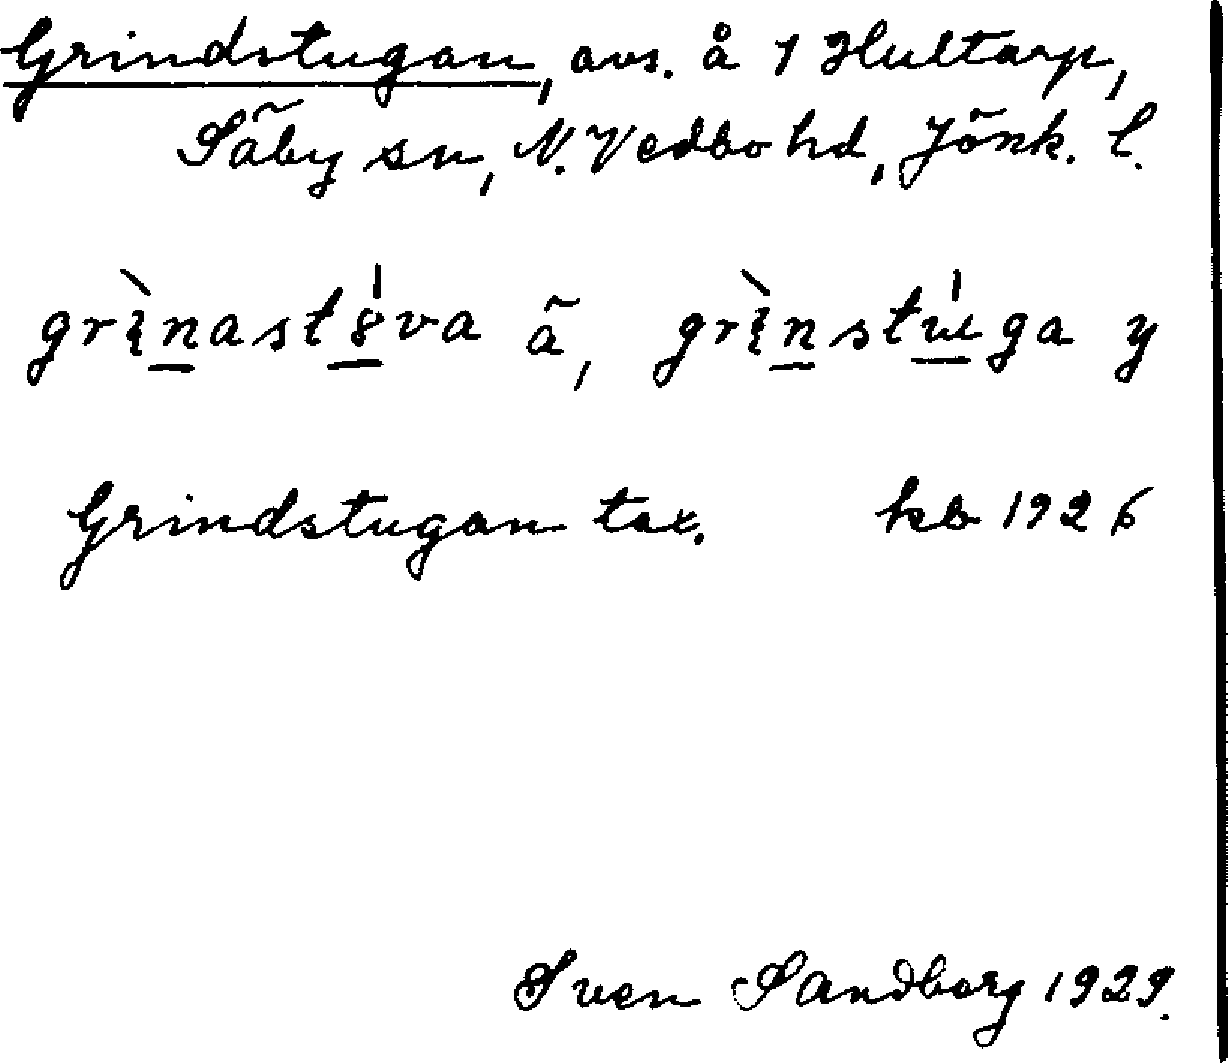 Grindstugan, avs. å 1 Hultarp,
Säby sn, N. Vedbo hd, Jönk. l.
grìnastȣ́va ä, grìnstúga y
Grindstugan tax. kb 1926
Sven Sandborg 1929.